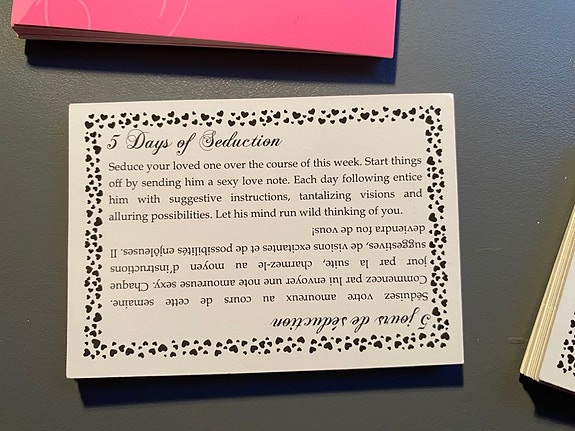 5 Days of Seduction
Seduce your loved one over the course of this week. Start things
off by sending him a sexy love note. Each day following entice
him with suggestive instructions, tantalizing visions and
alluring possibilities. Let his mind run wild thinking of you.
5 jours de séduction
Séduisez votre amoureux au cours de cette semaine.
Commencez par lui envoyer une note amoureuse sexy. Chaque
jour par la suite, charmez-le au moyen d'instructions
suggestives, de visions excitantes et de possibilités enjôleuses. Il
deviendra fou de vous!